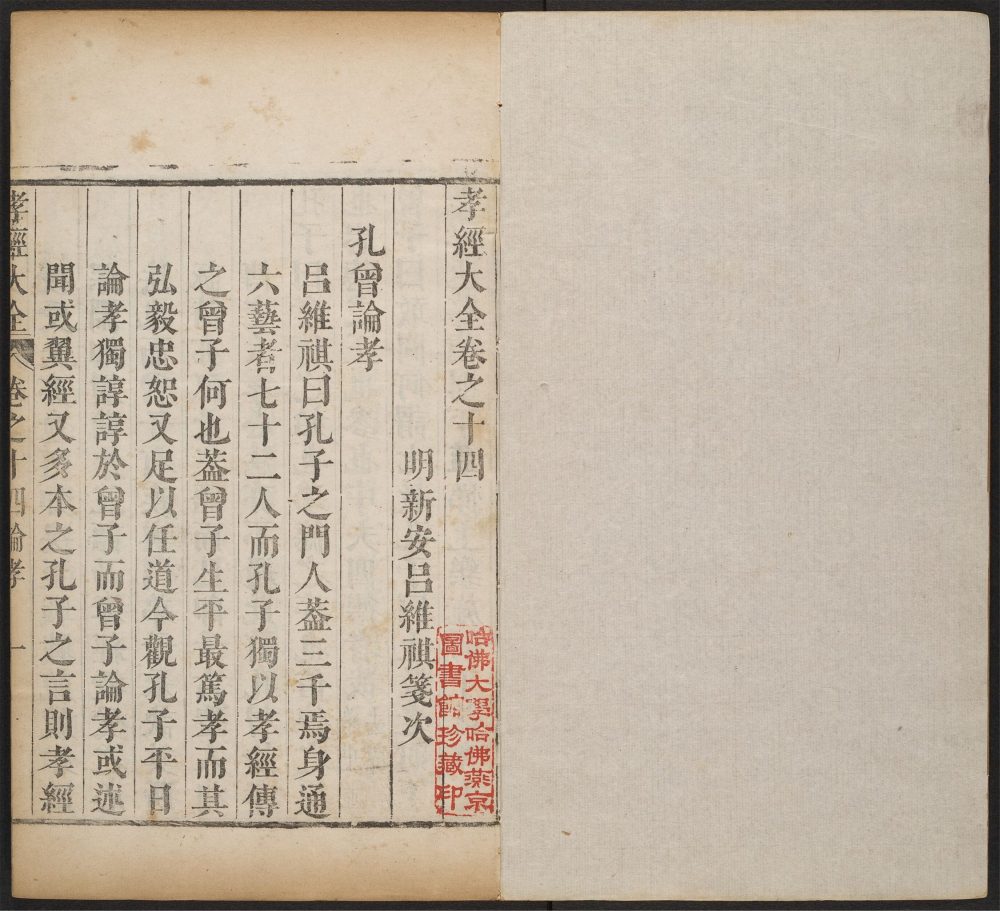 孝經大全卷之十四
明新安呂維祺箋次
孔曾論孝
呂維祺曰孔子之門人葢三千焉身通
六藝者七十二人而孔子獨以孝經傳
之曾子何也葢曾子生平最篤孝而其
弘毅忠恕又足以任道今觀孔子平日
論孝獨諄諄於曾子而曾子論孝或述
聞或翼經又多本之孔子之言則孝經
孝經大全 卷之十四論孝 一
哈佛大學哈佛燕京
圖書館珍藏印